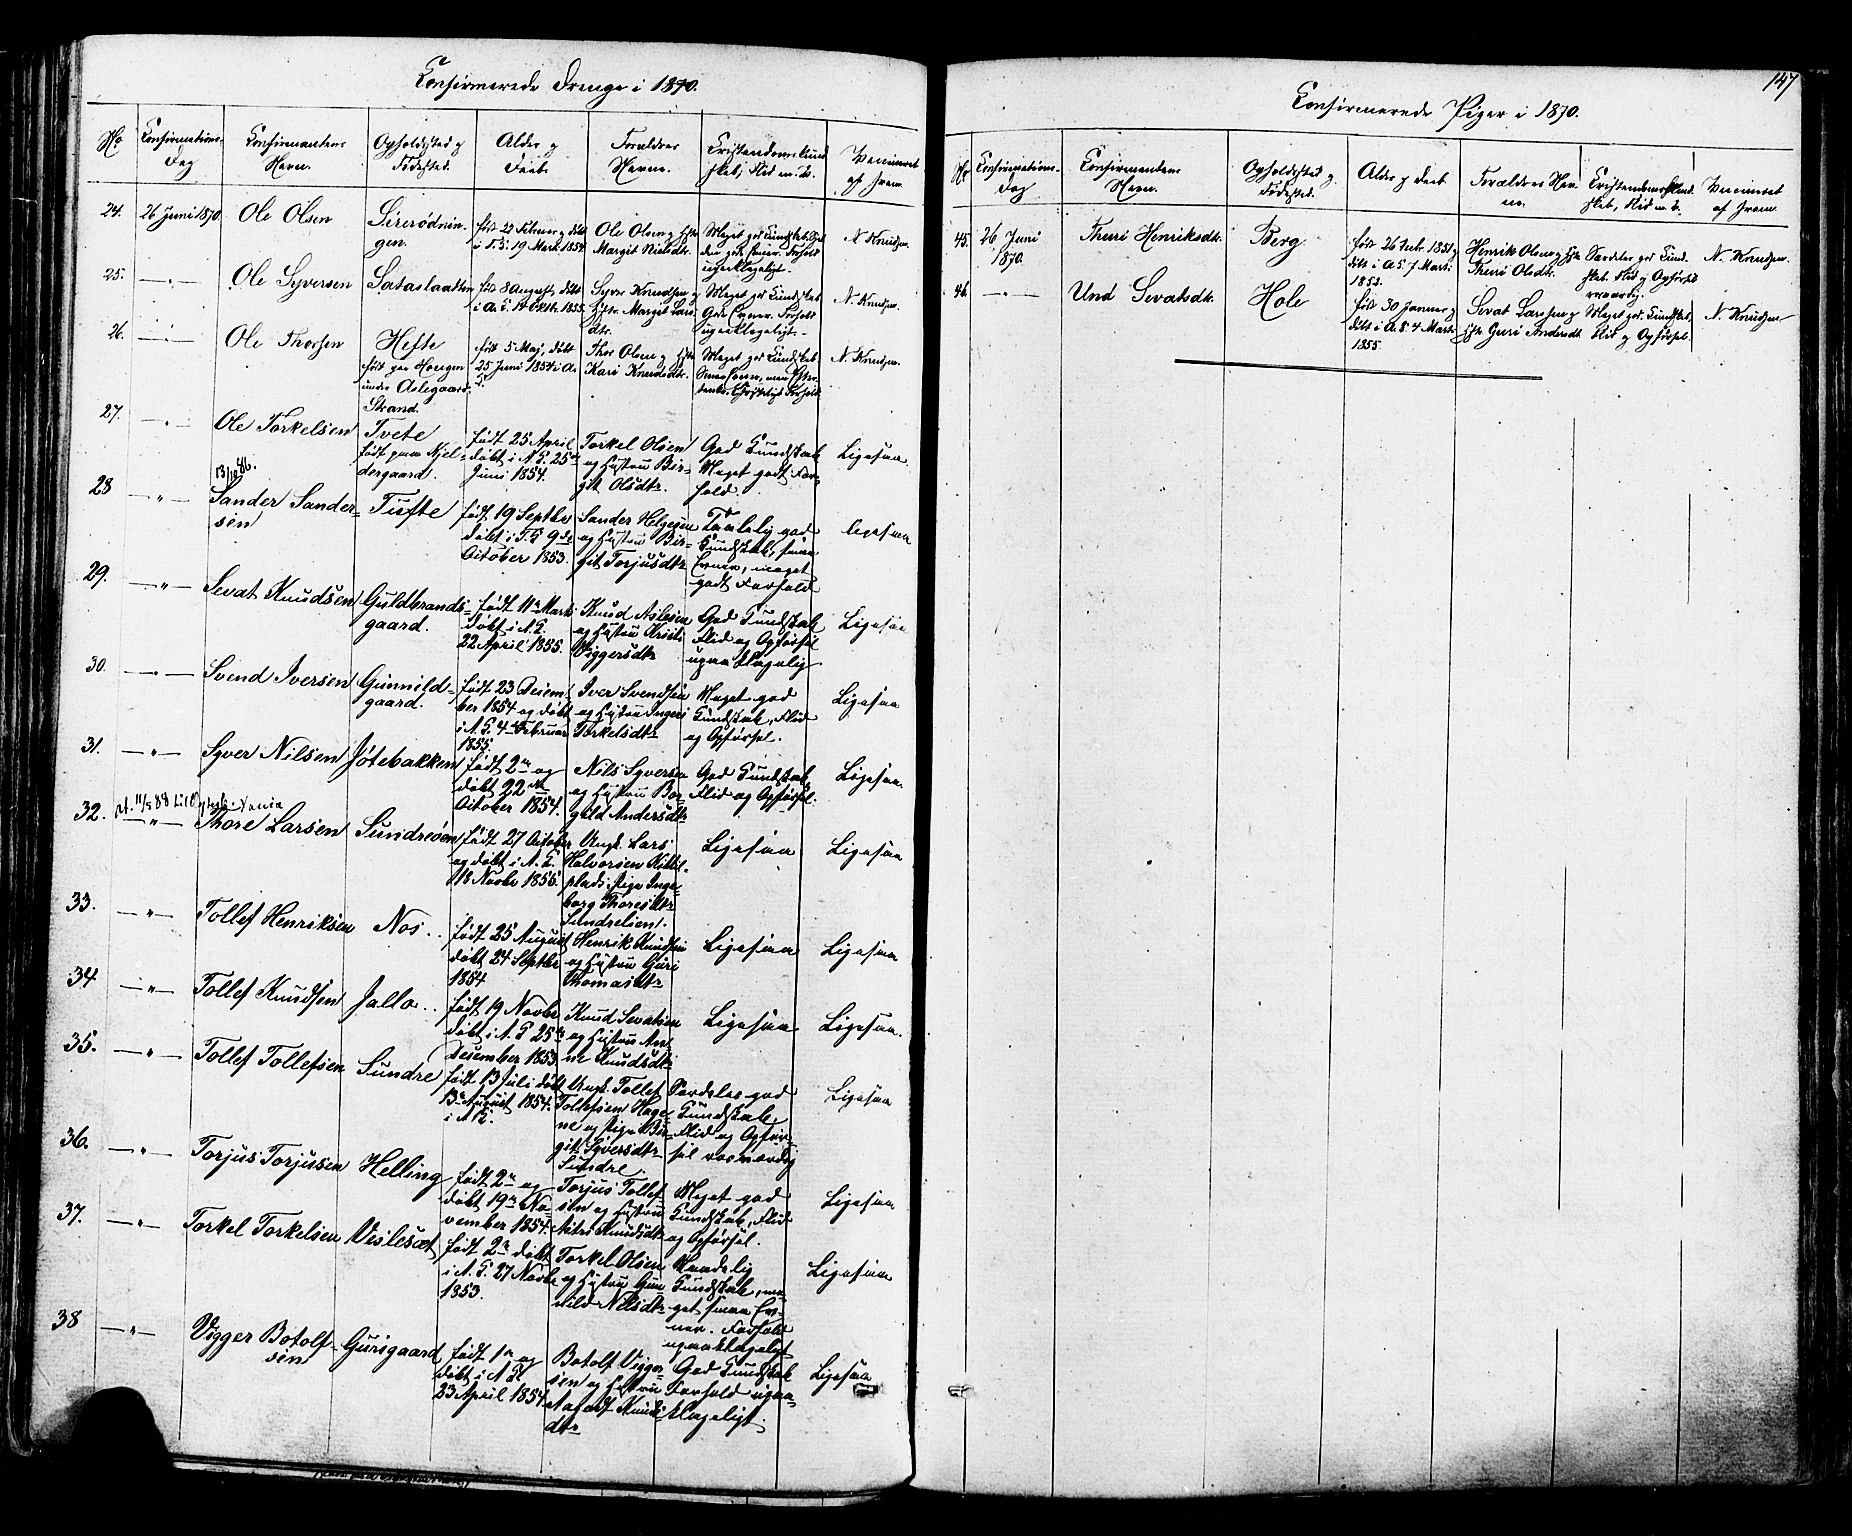 Confirmerede Drenge i 1870.
No Confirmations- Dag Confirmantens Navn. Opholdssted og Fødested. Alder og Daab Forældres Navne. Cristendomskundskab, Flid m. v. Vaccineret af hvem
24. 26 Juni 1870. Ole Olsen
født 22 Februar, døbt
i T. K. 19 Marts 1854
Ole Olsen og Hstr
Margit Nielsdtr.
Meget god Kundskab
N Knudsen.
25. —"— Ole Syversen Sataslaatten
født 8 August, døbt
Syver Knudsen og
Hstr. Margit Lars
dtr.
Meget god Kundskab
Gode Evner. Forhold
uperklageligt.
N. Knudsen.
26. —"— Ole Thorsen Hefte
født paa Haugen
under Aslegaard
Strand.
født 5 Maj, døbt
25 Juni 1854 i A
K.
Thor Olsen og Hstr
Kari Knudsdtr.
Meget god Kundskab
N. Knudsen.
27. —"— Ole Torkelsen Tvete
født paa Njel-
dergaard.
født 25 April
døbt i A. K. 25de
Juni 1854.
Torkel Olsen
og Hustru Bir-
git Olsdtr.
God Kundskab
Meget godt For-
hold.
Ligesaa
13/10 86.
28 —"— Sander Sander-
sen
Tufte
født 19 Septbr
døbt i T. K 9de
October 1853.
Sander Helgesen
og Hustru Bir-
git Torjusdtr
Taalelig god
Kundskab, smaa
Evner, meget
godt Forhold
ligesaa
29. —"— Sevat Knudsen Guldbrands-
gaard.
født 11te Marts
døbt i A. K.
22 April 1855.
Knud Aslesen
og Hustru Kristi
Viggersdtr
God Kundskab
Flid og Opførsel
upaaklagelig
Ligesaa
30. —"— Svend Iversen Gunnild-
gaard.
født 23 Decem-
ber 1854 og døbt
i A. K. 4de Februar
1855.
Iver Svendsen
og Hustru Ingeri
Torkelsdtr
Meget god
Kundskab, Flid
og Opførsel.
Ligesaa
31. —"— Syver Nilsen Jøtebakken
født 2de og
døbt 22de
October 1854.
Nils Syversen
og Hustru Bor-
gild Andersdtr
God Kundskab,
Flid og Opførsel.
Ligesaa.
32. —"— Thore Larsen Sundreøen
født 27 October
og døbt i A. K.
18 Novbr 1855.
Ungk. Lars
Halvorsen
plads, Pige Inge-
borg Thoresdtr
Sundrelien.
Ligesaa Ligesaa
33. —"— Tollef Henriksen Nos.
født 25 August
døbt 24 Septbr
1854
Henrik Knudsen
og Hustru Guri
Thomasdtr
Ligesaa Ligesaa
34 —"— Tollef Knudsen Jallo.
født 19 Novbr
døbt i A. K 25de
December 1853
Knud Sevatsen
og Hustru An-
ne Knudsdtr
Ligesaa Ligesaa.
35. —"— Tollef Tollefsen Sundre
født 13 Juli døbt
13de August 1854.
i A K.
Ungk. Tollef
Tollefsen Hage-
ne og Pige Bir-
git Syversdtr
Sundre.
Særdeles god
Kundskab
Flid og Opfør-
sel rosværdig
Ligesaa
36. —"— Torjus Torjussen Helling
født 2de og
døbt 19de No-
vember 1854.
Torjus Tollef-
sen og Hustru
Astri Knudsdtr
Meget god
Kundskab, Flid
og Opførsel.
Ligesaa
37. —"— Torkel Torkelsen Veslesæt
født 2de døbt
i A. K. 27 Novbr
1853.
Torkel Olsen
og Hustru Gun-
nild Nilsdtr
Maadelig
Kundskab, me-
get smaa Ev-
ner. Forhold
upaaklageligt
Ligesaa
38 —"— Vigger Botolf-
sen
Gurigaard
født 1de og
døbt i A K
23 April 1854
Botolf Vigger-
sen og Hustru
Knuds-
dtr
God Kundskab
Forhold upaa-
klageligt.
Ligesaa
147
Confirmerede Piger i 1870.
No Confirmations- Dag Confirmandens Navn. Opholdssted og Fødested. Alder og Daab Forældres Navne. Cristendomskundskab, Flid m. v. Vaccineret af hvem
45. 26 Juni
1870.
Thuri Henriksdtr. Berg
døbt i A K. 7 Marts
1852.
Henrik Olsen og Hstr
Thuri Olsdtr.
Særdeles god Kund-
skab. Flid og Opførsel
rosværdig.
N. Knudsen.
46. —"— Und Sevatsdtr. Hole
født 30 Januar og
døbt i A. K. 4 Marts
1855.
Sevat Larssen og
Hstr Guri Andersdtr
Meget god Kundskab,
Flid og Opførsel.
N. Knudsen